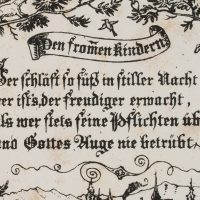 Den from̅en Kindern
Wer schläft so süß in stiller Nacht
Wer ist's der freudiger erwacht,
Als wer stets seine Pflichten üb
Und Gottes Auge nie betrübt.